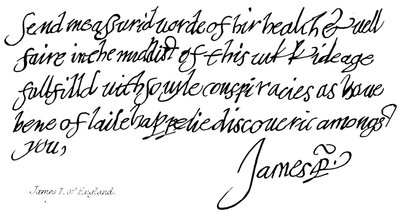 Send me assurid worde of hir health & well
faire in the middist of this wikkid eage
fullfilld with so vyle conspiracies as haue
bene of laite happelie discouerit amongst
you,
James R.
James I. of England.